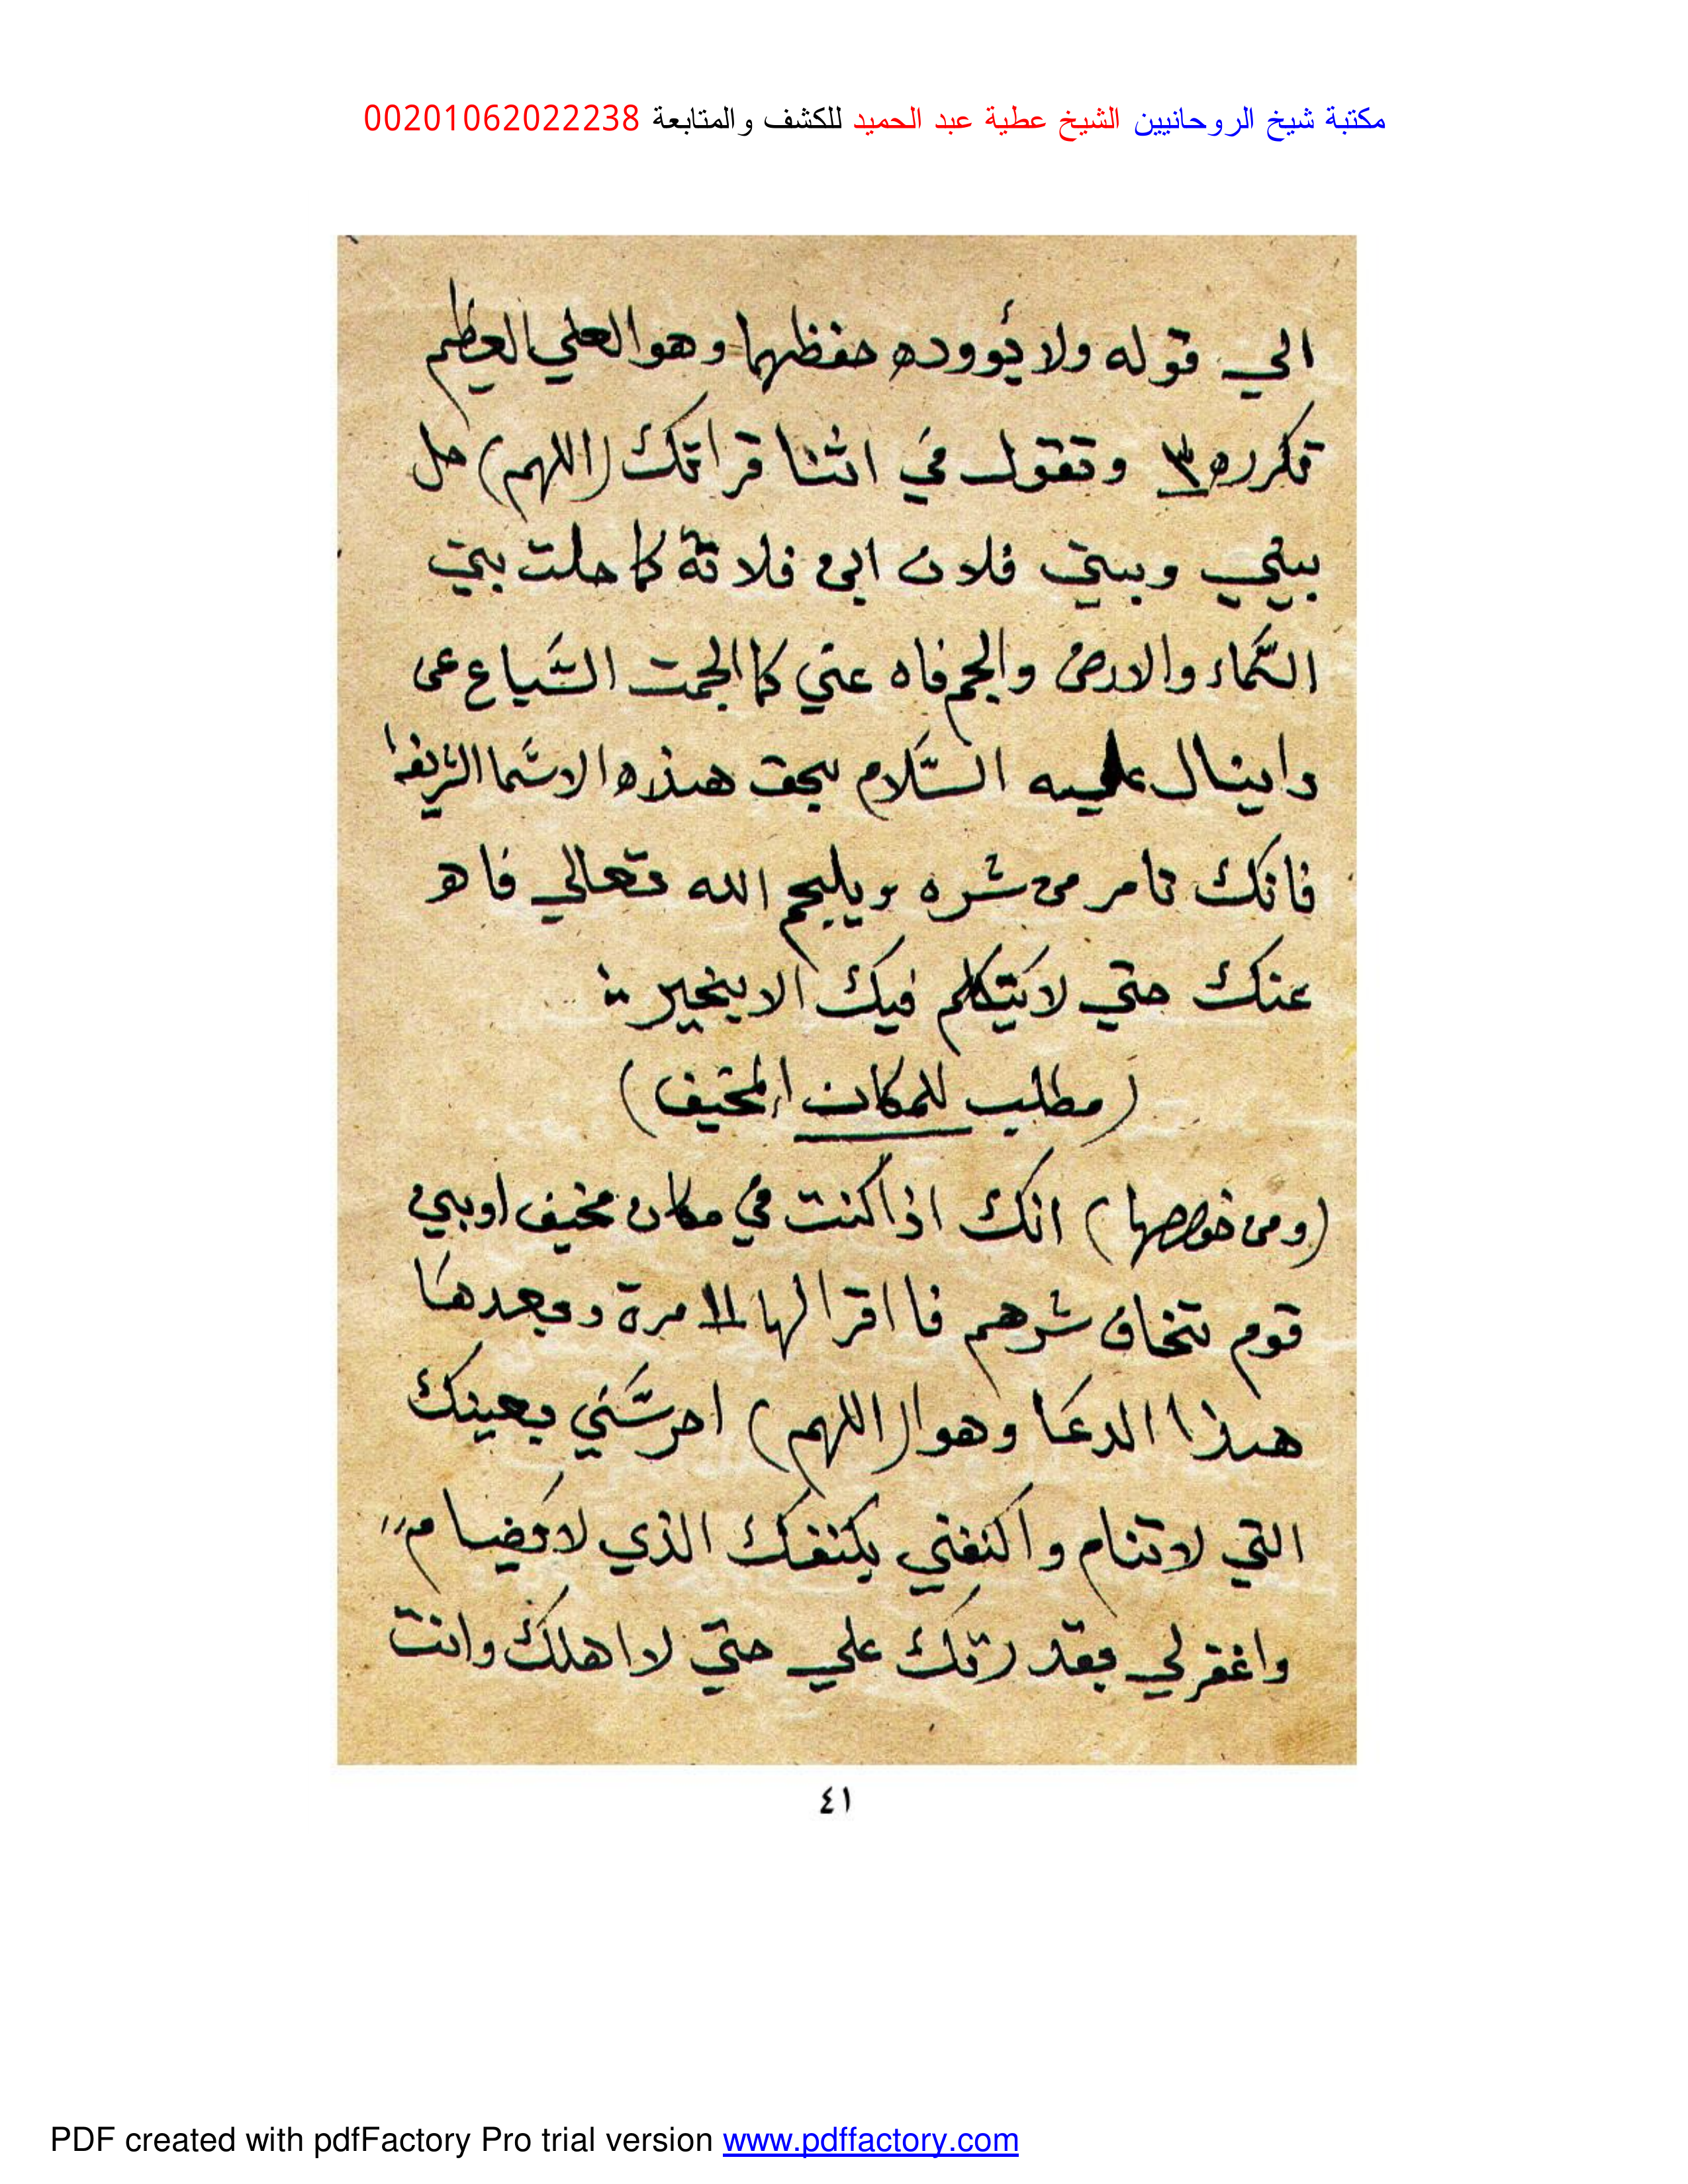 مكتبة شيخ الروحانيين الشيخ عطية عبد الحميد للكشف والمتابعة 00201062022238
الي قوله ولا يَوُوده حفظهما وهو العلي العظيم
تكرره ٣ وتقول في اثنا قراتك (اللهم) حل
بيني وبين فلان ابن فلانة كما حلت بين
السَّماء والارض والجم فاه عني كما الجمت السَّباع عن
دانيال عليه السَّلام بحق هذه الاسَّما الشريفه
فانك تامر من شره ويلجم الله تعالي فاه
عنك حتي لا يَتكلم فيك الا بخير
(مطلب للمكان المخيف)
(ومن خواصها) انك اذا كنت في مكان مخيف او بين
قوم تخاف شرهم فا اقرا لها ١١ مرة وبعدها
هذا الدعا وهو (اللهم) احرسَّني بعينك
التي لا تنام واكنفني بكنفك الذي لا يضام
واغفر لي بقدرتك علي حتي لا اهلك وانت
٤١
PDF created with pdfFactory Pro trial version www.pdffactory.com